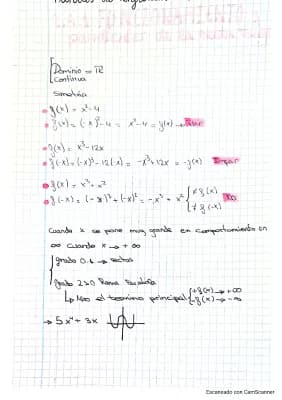 Dominio = ℝ
Continua
Simetría
• f(x) = x²-4
• f(-x) = (-x)²-4 = x²-4 = f(x) → Par
• f(x) = x³-12x
• f(-x) = (-x)³-12(-x) = -x³+12x = -f(x) Impar
• f(x) = x³+x²
• f(-x) = (-x)³+(-x)² = -x³+x² { ≠ f(x)
≠ f(-x) No
Cuando x se pone muy grande en comportamiento en
∞ cuando x → +∞
grado 0.1 → rectas
grado ≥ Rama
el termino principal { +f(x) → +∞
-f(x) → -∞
→ 5x⁴ + 3x
Escaneado con CamScanner